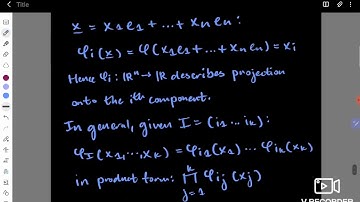 x = x₁e₁ + ... + xₙeₙ :
φᵢ(x) = φ(x₁e₁ + ... + xₙeₙ) = xᵢ
Hence φᵢ : ℝⁿ → ℝ describes projection
onto the iᵗʰ component.
In general, given I = (i₁ ... iₖ) :
φ_I(x₁, ..., xₖ) = φᵢ₁(x₁) ... φᵢₖ(xₖ)
in product form: ∏ⱼ₌₁ᵏ φᵢⱼ(xⱼ)
V RECORDER